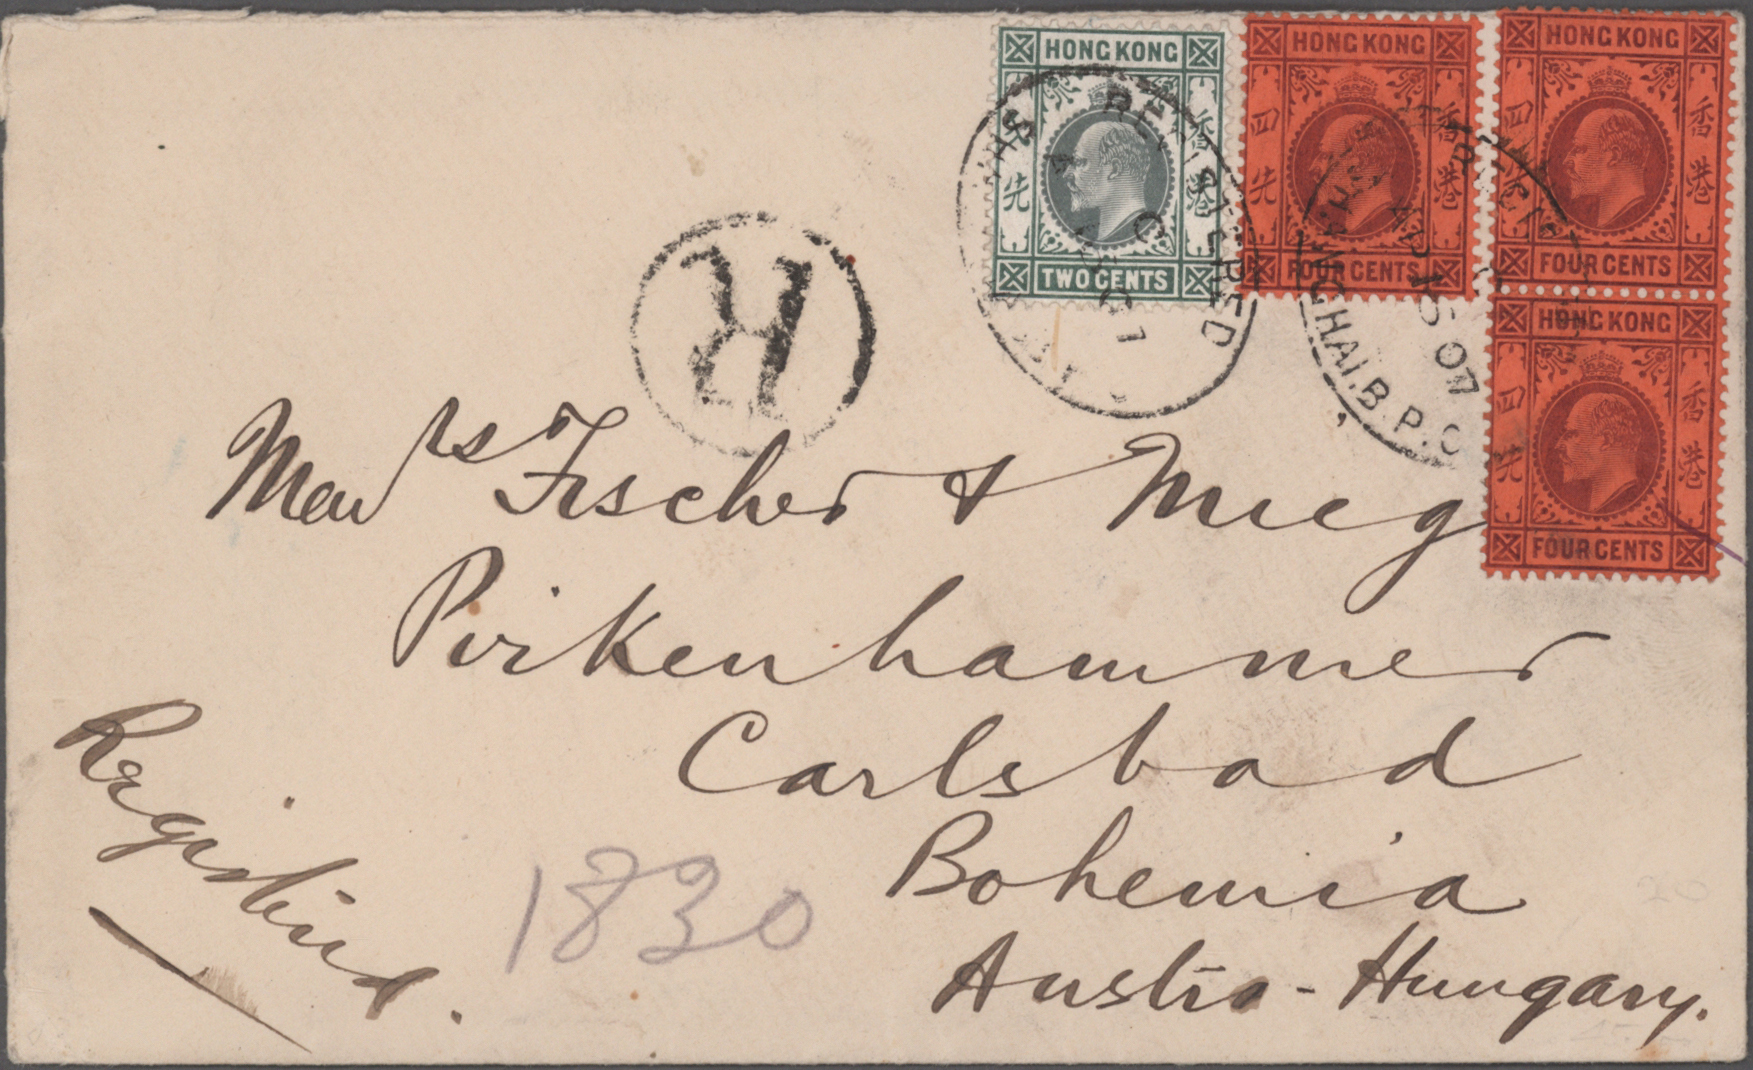 HONG KONG
四先
香港
TWO CENTS
HONG KONG
四先
香港
FOUR CENTS
HONG KONG
四先
香港
FOUR CENTS
HONG KONG
四先
香港
FOUR CENTS
REGISTERED
AP 15 07
SHANGHAI.B.P.O
R
Messrs Fischer & Mieg
Pirkenhammer
Carlsbad
Bohemia
Austria-Hungary.
Registered.
1830
20